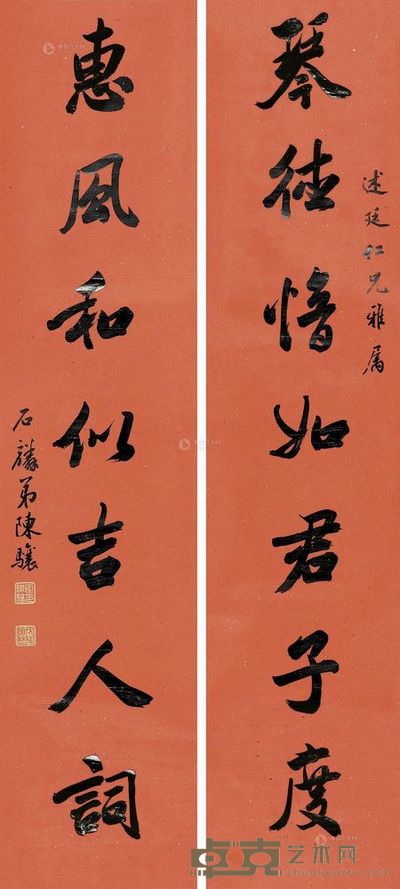 琴德愔如君子度
述廷仁兄雅属
惠風和似吉人詞
石麟弟陳驤
卓克艺术网